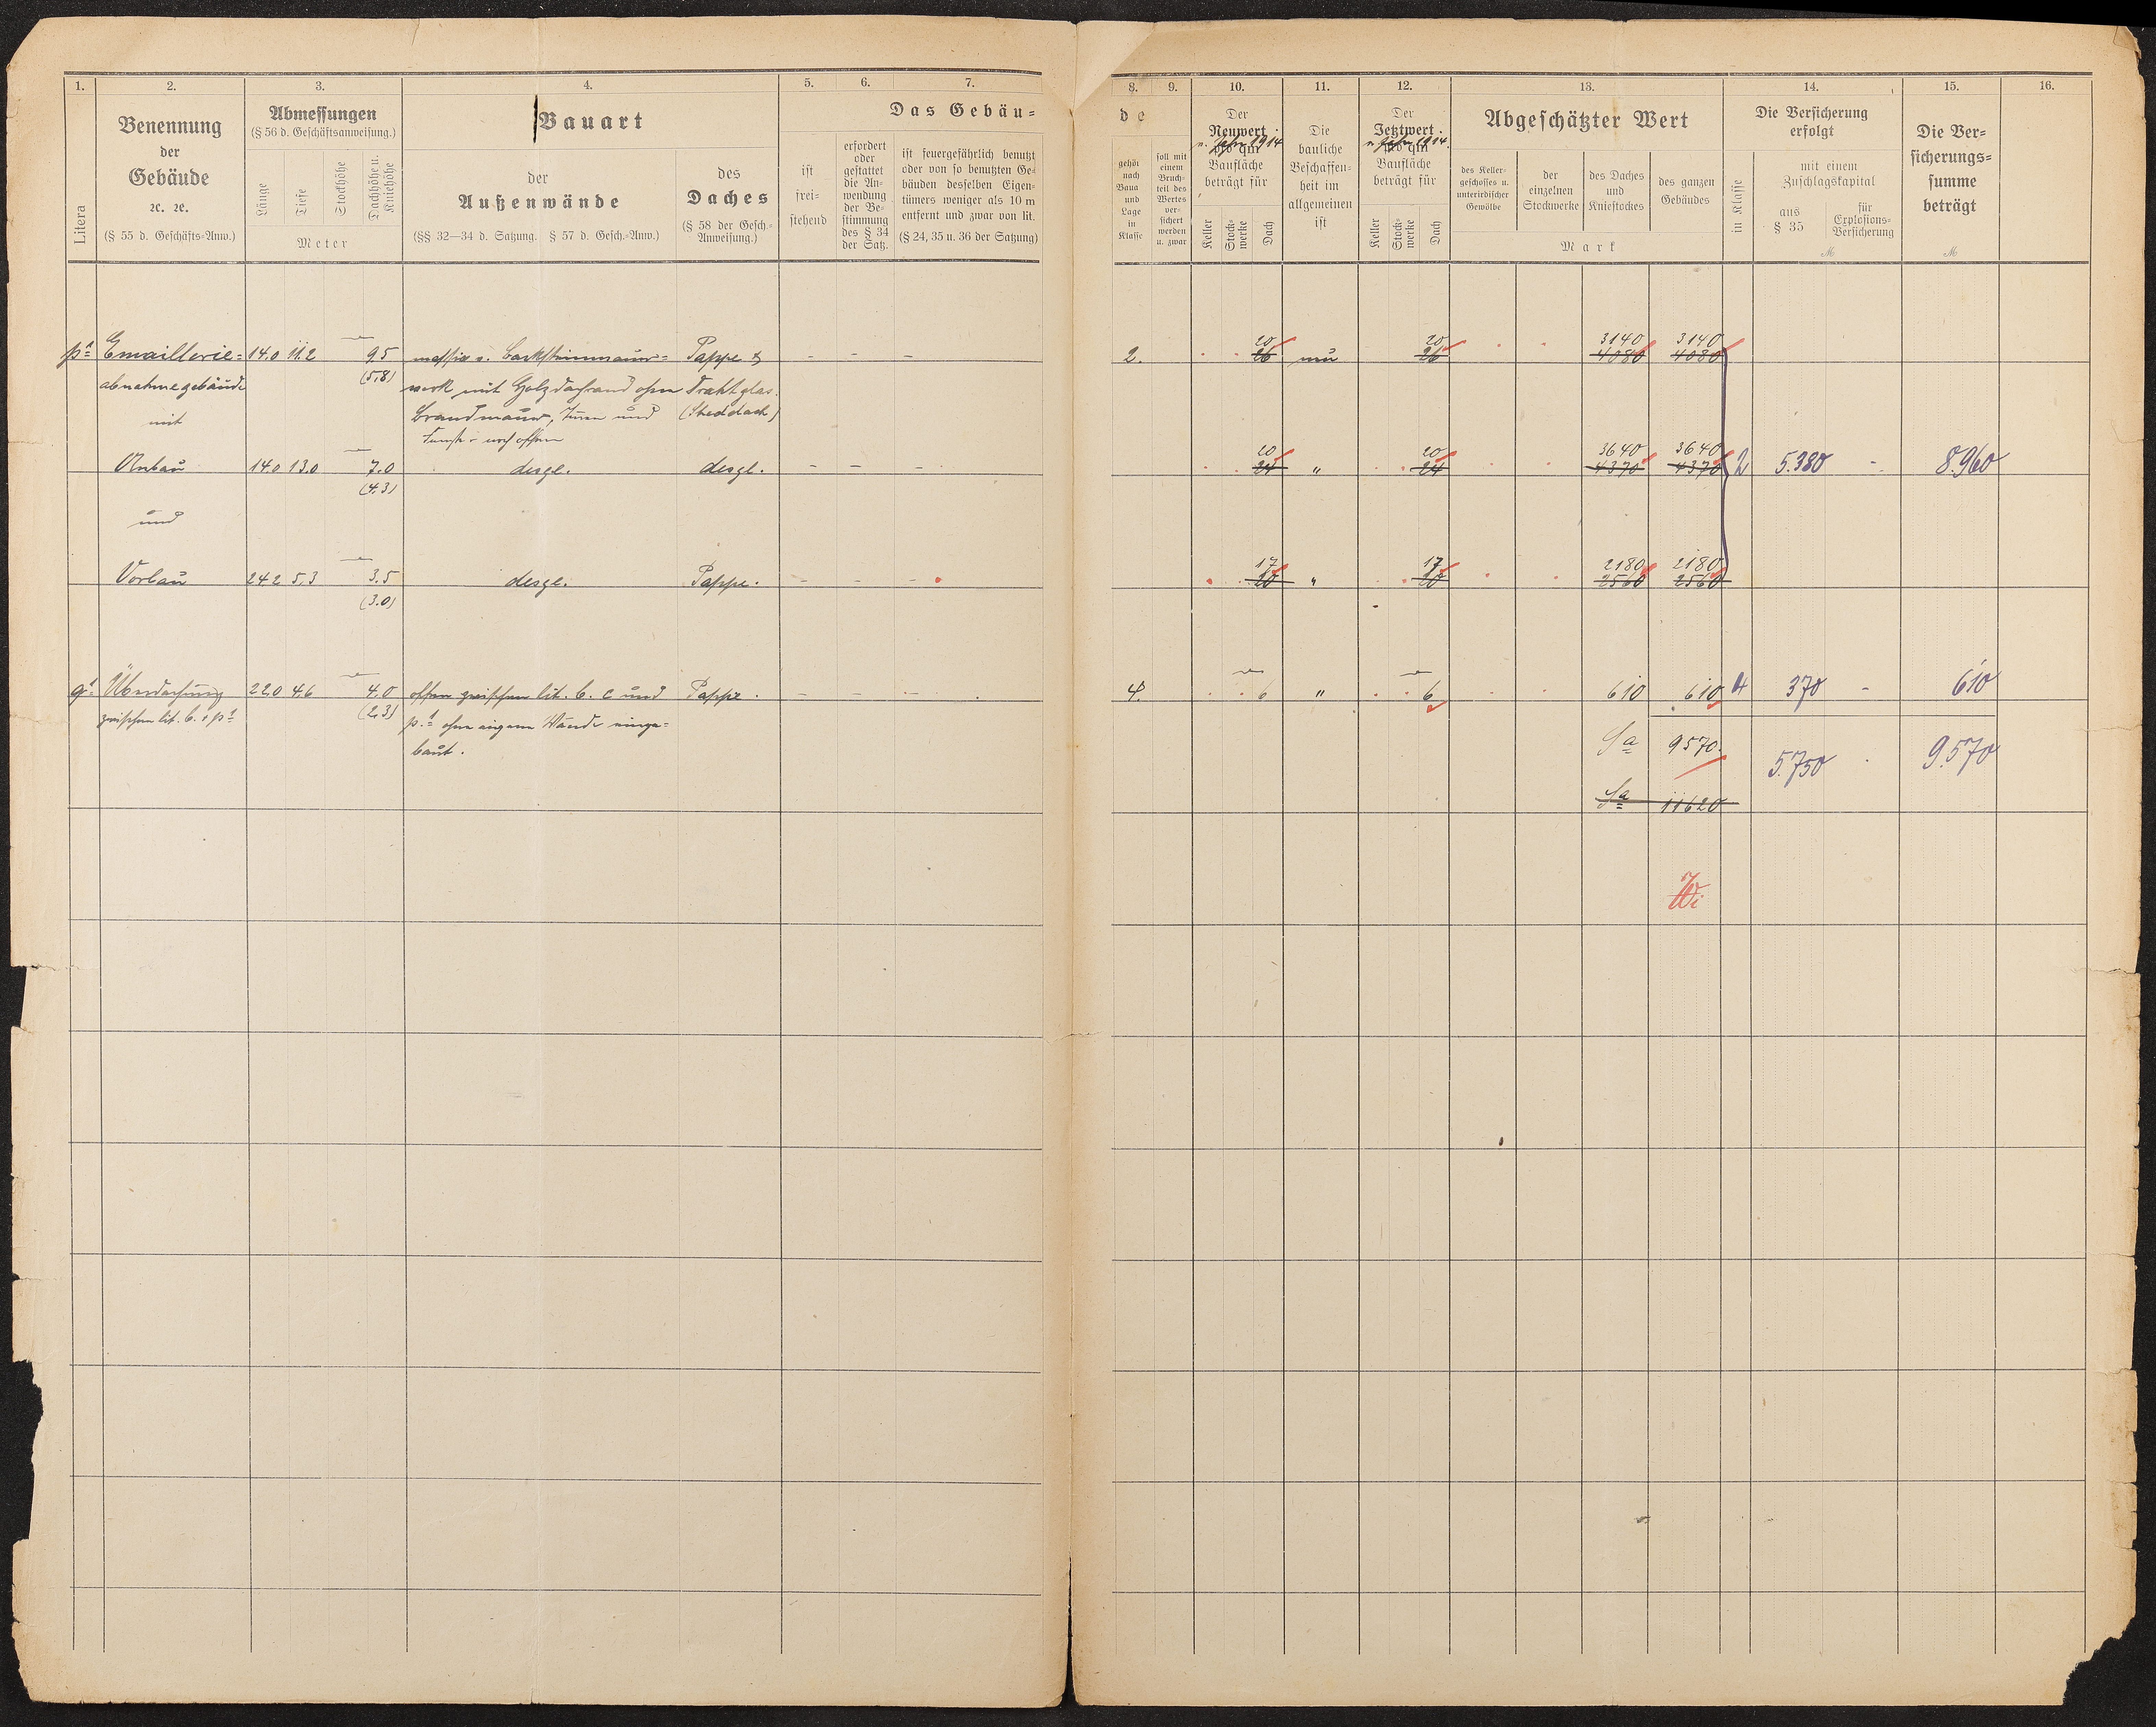 1. 2. 3. 4. 5. 6. 7. 8. 9. 10. 11. 12. 13. 14. 15. 16.
Litera
Benennung
der
Gebäude
ꝛc. ꝛc.
(§ 55 d. Geschäfts-Anw.)
Abmessungen
(§ 56 d. Geschäftsanweisung.)
Länge
Tiefe
Stockhöhe
Dachhöhe u.
Kniehöhe
Meter
Bauart
der
Außenwände
(§§ 32—34 d. Satzung. § 57 d. Gesch.-Anw.)
des
Daches
(§ 58 der Gesch.-
Anweisung.)
Das Gebäu-
ist
frei-
stehend
erfordert
oder
gestattet
die An-
wendung
der Be-
stimmung
des § 34
der Satz.
ist feuergefährlich benutzt
oder von so benutzten Ge-
bäuden desselben Eigen-
tümers weniger als 10 m
entfernt und zwar von lit.
(§ 24, 35 u. 36 der Satzung)
de
gehört
nach
Baua
und
Lage
in
Klasse
soll mit
einem
Bruch-
teil des
Wertes
ver-
sichert
werden
u. zwar
Der
Neuwert
v. Jahr 1914
pro qm
Baufläche
beträgt für
Keller
Stock-
werke
Dach
Die
bauliche
Beschaffen-
heit im
allgemeinen
ist
Der
Jetztwert
v. Jahr 1914.
pro qm
Baufläche
beträgt für
Keller
Stock-
werke
Dach
Abgeschätzter Wert
des Keller-
geschosses u.
unterirdischer
Gewölbe
der
einzelnen
Stockwerke
des Daches
und
Kniestockes
des ganzen
Gebäudes
Mark
Die Versicherung
erfolgt
in Klasse
mit einem
Zuschlagskapital
aus
§ 35
für
Explosions-
Versicherung
M
Die Ver-
sicherungs-
summe
beträgt
M
20 20 3140 3140
p¹ Emaillerie- 14.0 11.2 9.5 massiv v. Backsteinmauer- Pappe & – – – 2. 26 neu 26 4080 4080
abnahmegebäude (5.8) werk mit Holzdachrand ohne Drahtglas.
mit Brandmauer, Türen und (Sheddach)
Fenster noch offen
20 20 3640 3640
Anbau 14.0 13.0 7.0 desgl. desgl. – – – 24 " 24 4370 4370 2 5.380 - 8.960
(4.3)
und
17 17 2180 2180
Vorbau 24.2 5.3 3.5 desgl. Pappe. – – – 20 " 20 2560 2560
(3.0)
q¹ Überdachung 22.0 4.6 4.0 offen zwischen lit. b. c und Pappe. – – – 4. 6 " 6 610 610 4 370 - 610
zwischen lit. b. & p¹ (2.3) p.¹ ohne eigene Wände einge-
baut.
Sa 9570. 5.750 9.570
Sa 11620
Wi